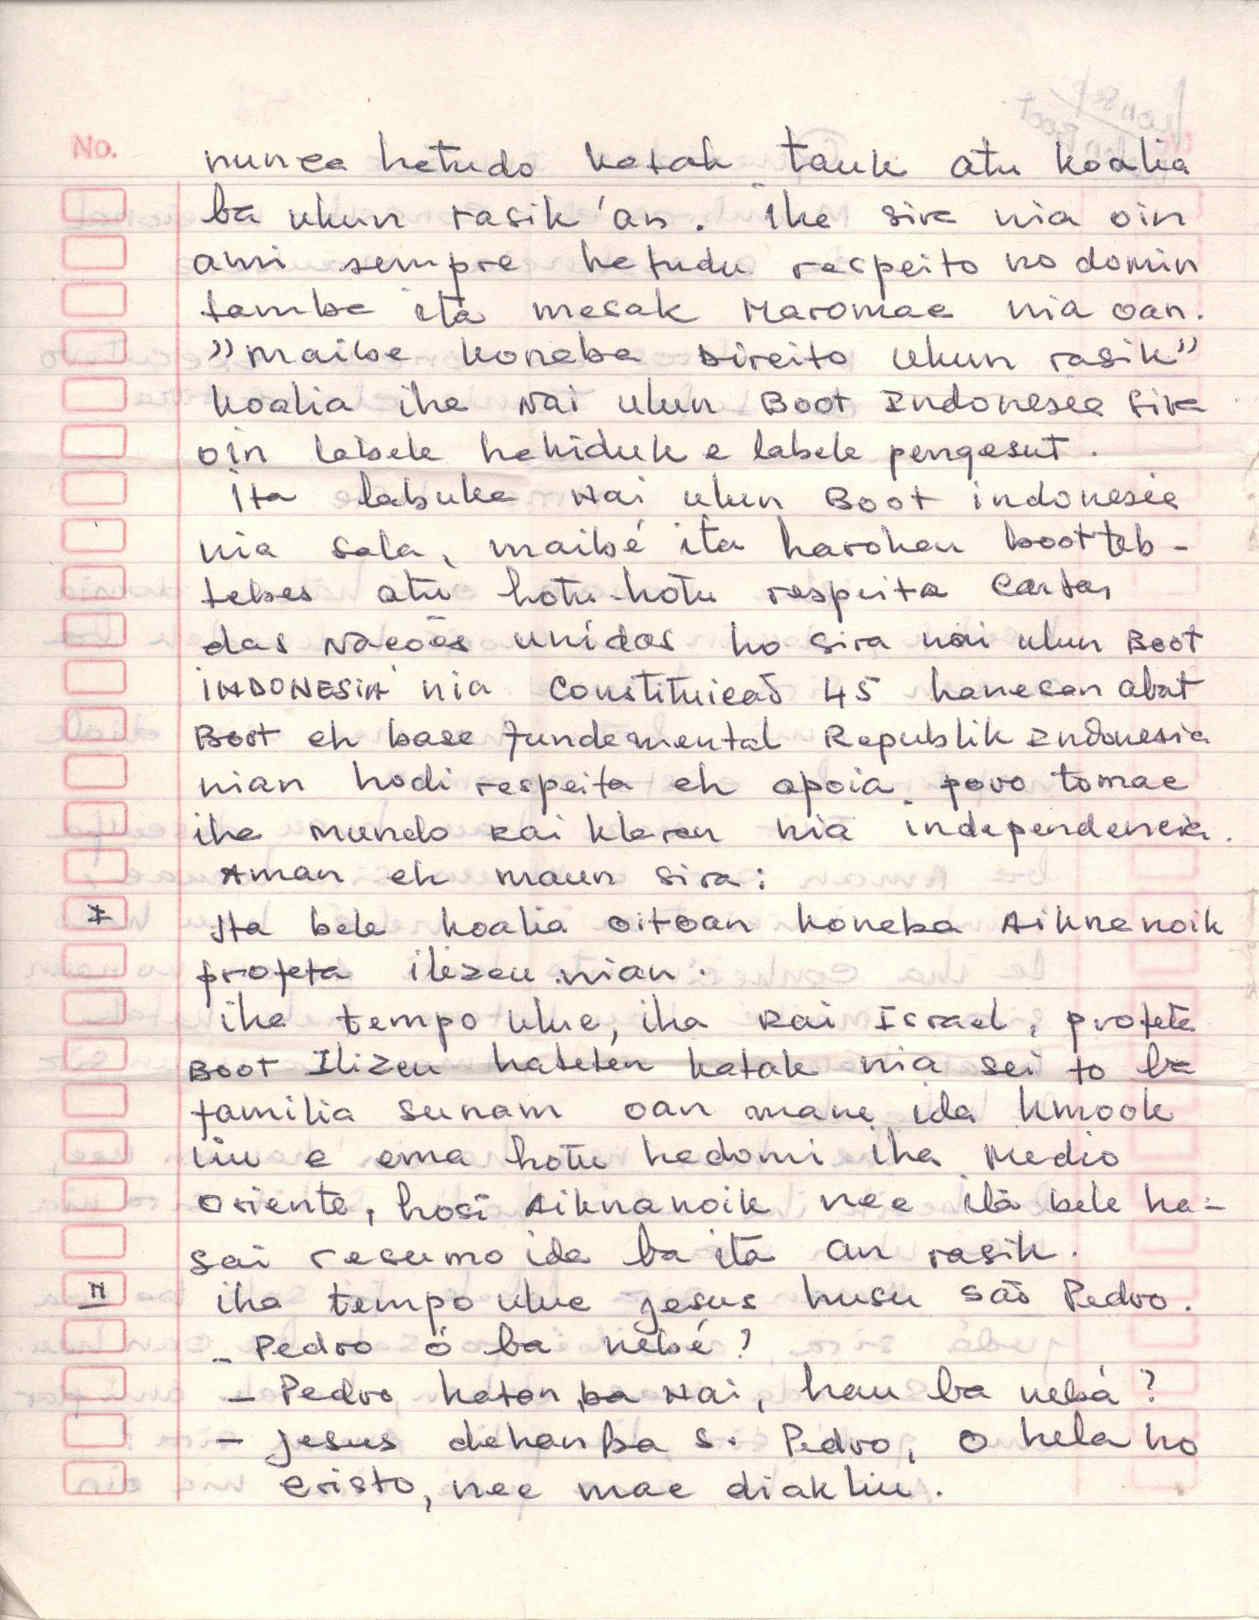 No.
nunca hatudo katak tauk atu koalia
ba ukun rasik'an. Iha sira nia oin
ami sempre hatudu respeito no domin
tamba ita mesak Maromac nia oan.
"maibe koneba Direito ukun rasik"
koalia iha Nai ulun Boot Indonesia sira
oin labele hakiduk e labele pengasut.
Ita labuka Nai ulun Boot indonesia
nia sala, maibé ita harohan boot teb-
tebes atu hotu-hotu respeita Cartas
das Nacoēs unidas ho sira nai ulun Boot
INDONESIA nia Constituicaõ 45 hanesan abat
Boot eh base fundamental Republik Indonesia
nian hodi respeita eh apoia povo tomac
iha mundo rai klaran nia independencia.
Aman eh maun sira:
I
Ita bele koalia oitoan koneba Aiknanoik
profeta ilizeu nian.
iha tempo uluc, iha Rai Israel, profeta
Boot Ilizeu hateten katak nia sei to ba
familia sunam oan mane ida kmook
liu e ema hotu hadomi iha Medio
Oriente, hosi Aiknanoik nee ita bele ha-
sai resumo ida ba ita an rasik.
II
iha tempo uluc Jesus husu Saõ Pedro.
- Pedro ó ba nebé?
- Pedro hatan ba Nai, hau ba nebá?
- Jesus dehan ba S. Pedro, o hela ho
Cristo, nee mac diak liu.